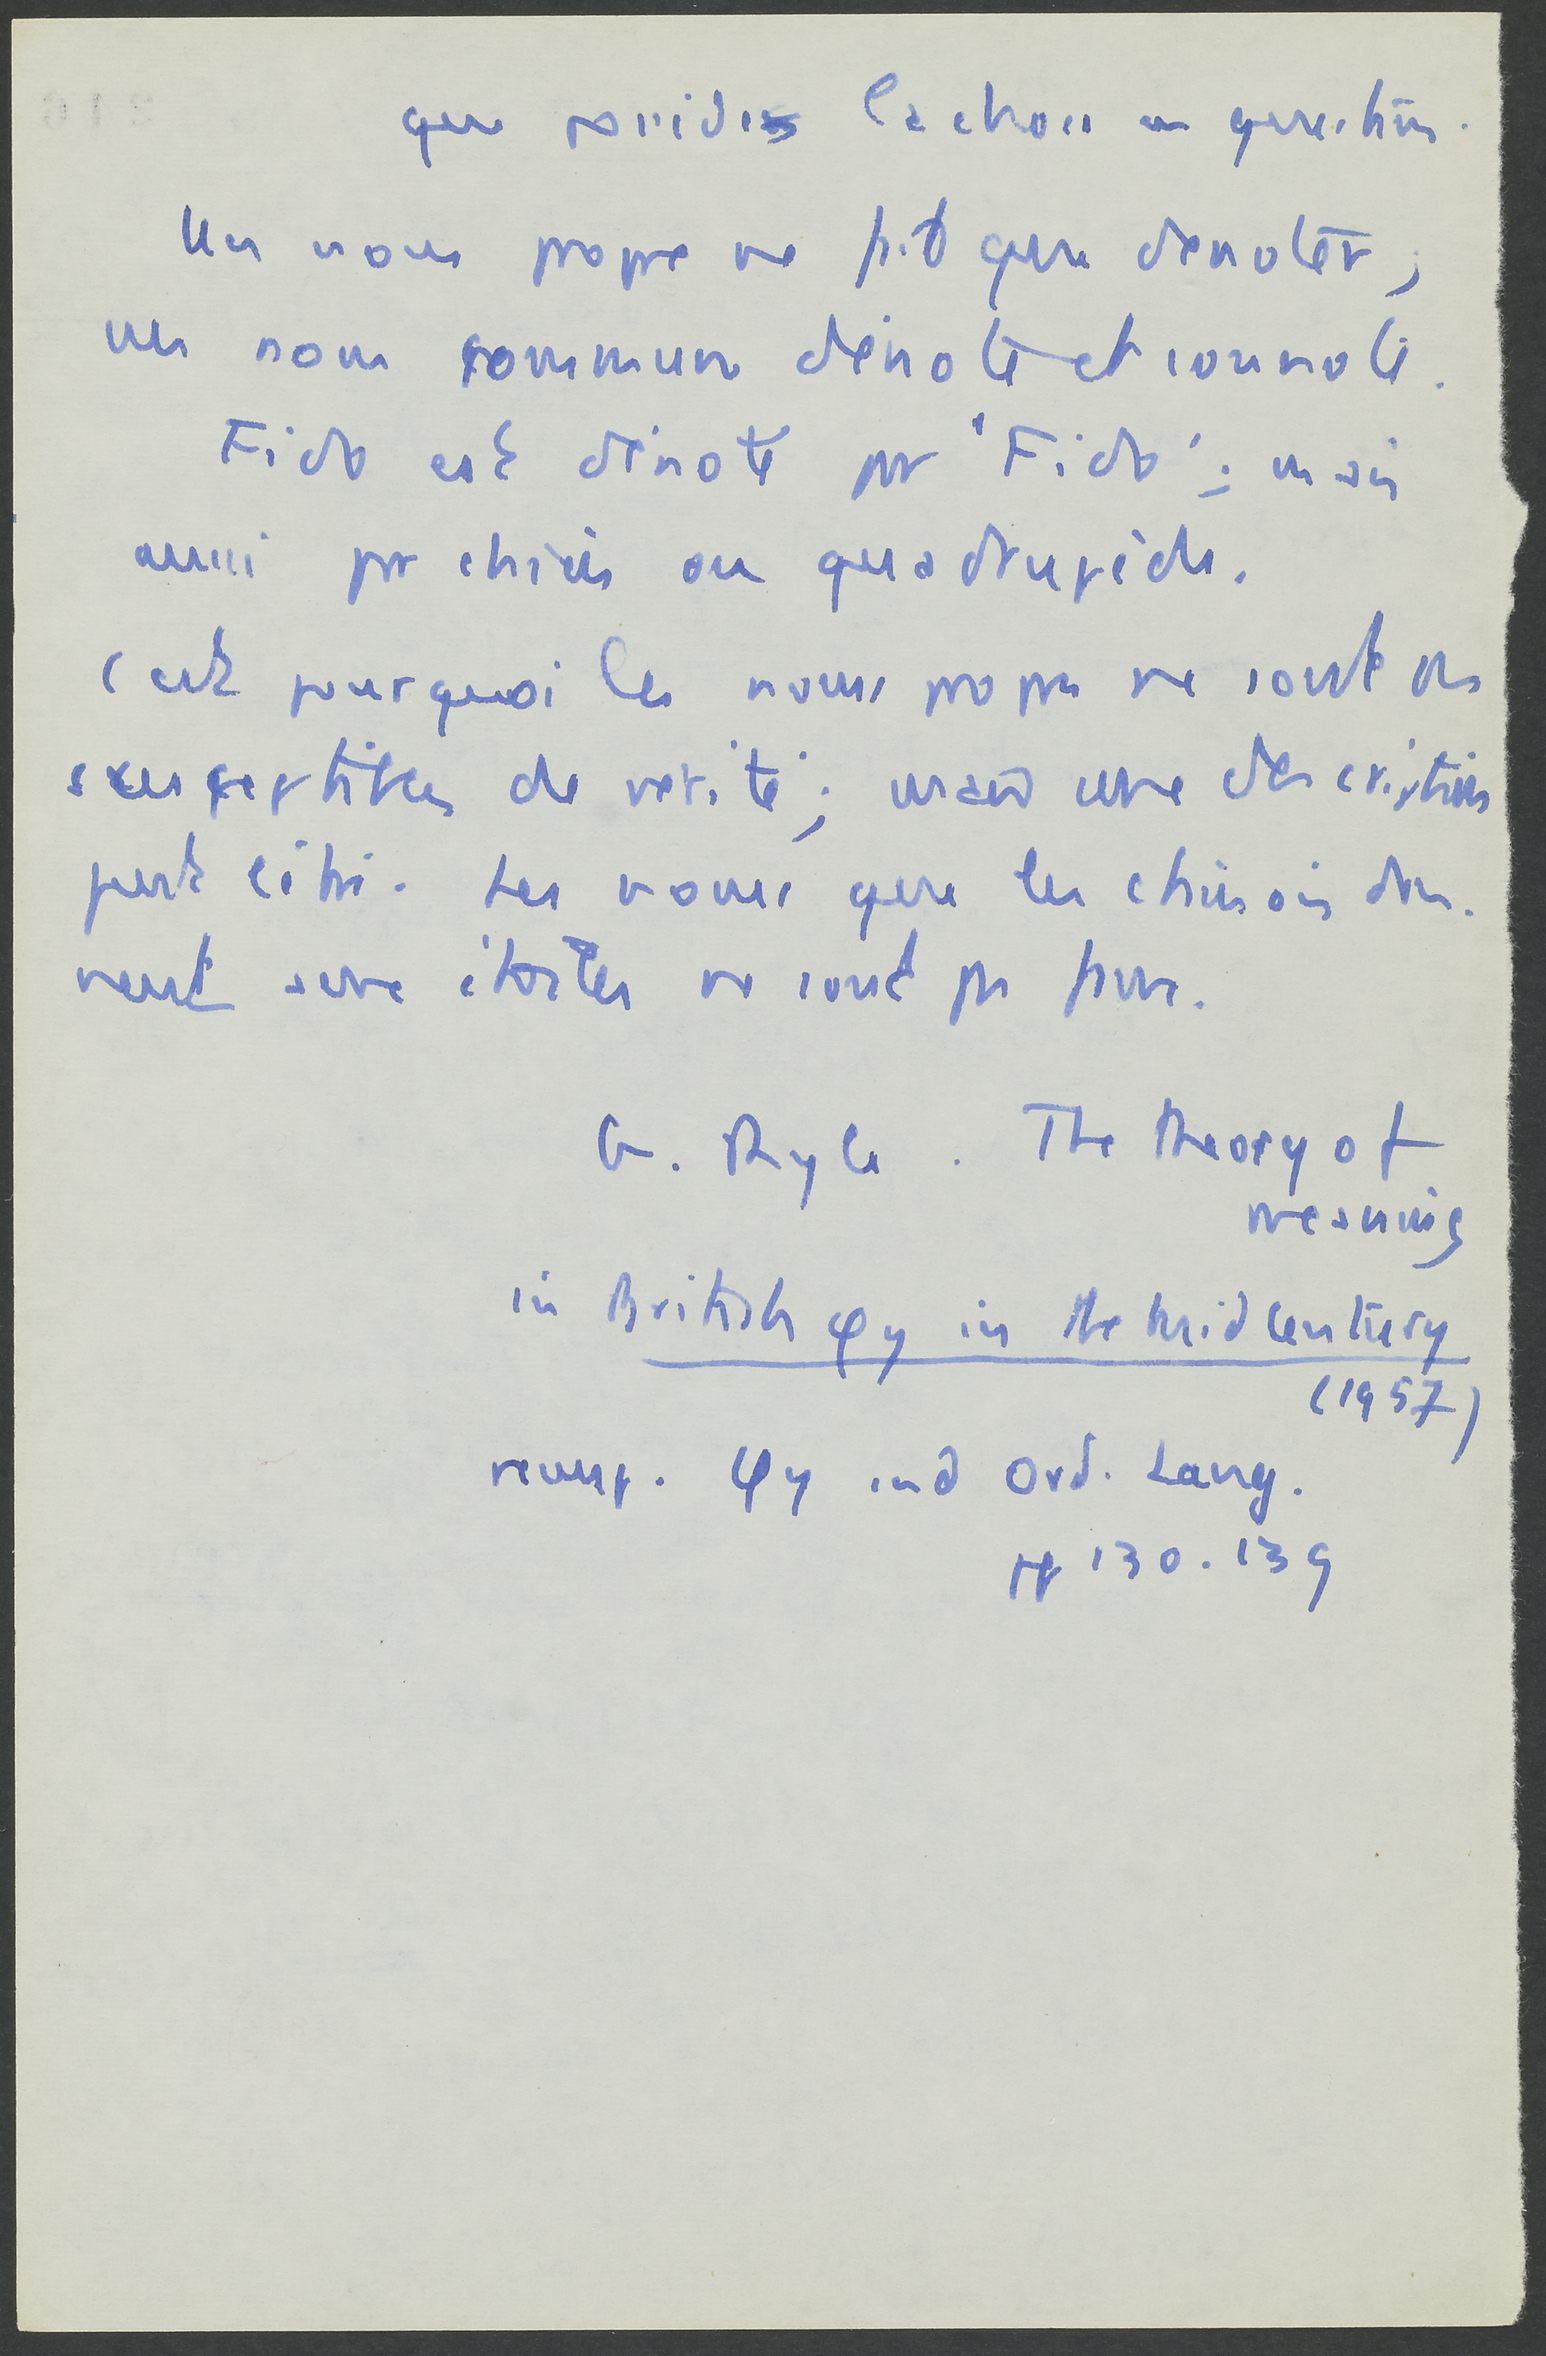 que possède la chose en question.
Un nom propre ne pt que dénoter ;
un nom commun dénote et connote.
Fido est dénoté par 'Fido' ; mais
aussi par chien ou quadrupède.
C'est pourquoi les noms propres ne sont pas
susceptibles de vérité ; mais une description
peut l'être. Les noms que les chinois don-
nent aux étoiles ne sont pas
G. Ryle . The theory of
meaning
in British φy in the Mid Century
(1957)
réimp. φy and Ord. Lang.
pp 130-139